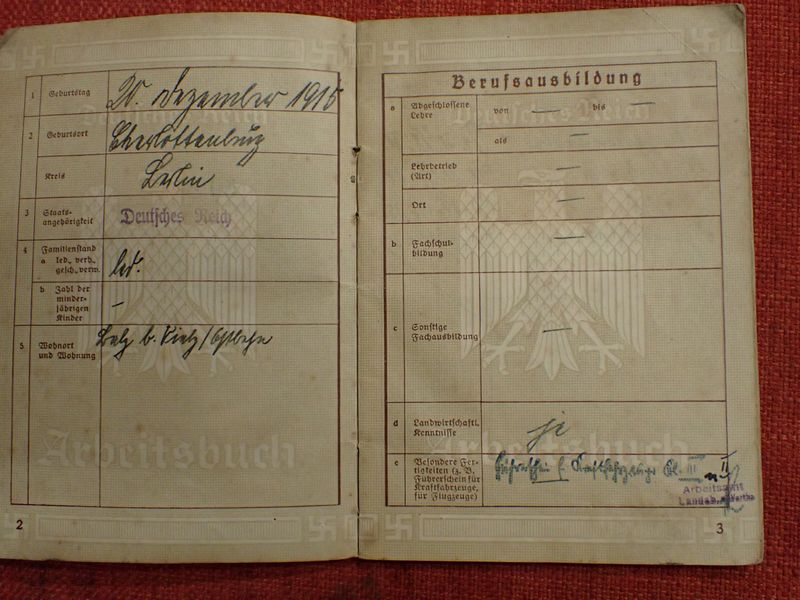 1 Geburtstag 20. Dezember 1916
2 Geburtsort Charlottenburg
Kreis Berlin
3 Staats-
angehörigkeit Deutsches Reich
4 Familienstand
a led., verh.,
gesch., verw. led.
b Zahl der
minder-
jährigen
Kinder –
5 Wohnort
und Wohnung Balz b. Vietz/Ostbahn
Arbeitsbuch
2
Berufsausbildung
a Abgeschlossene
Lehre von — bis —
als —
Lehrbetrieb
(Art) —
Ort —
b Fachschul-
bildung —
c Sonstige
Fachausbildung —
d Landwirtschaftl.
Kenntnisse ja
e Besondere Fer-
tigkeiten (z. B.
Führerschein für
Kraftfahrzeuge,
für Flugzeuge) Führerschein f. Kraftfahrzeuge Kl. III u. II
Arbeitsamt
Landsb. Warthe
Deutsches Reich
Arbeitsbuch
3